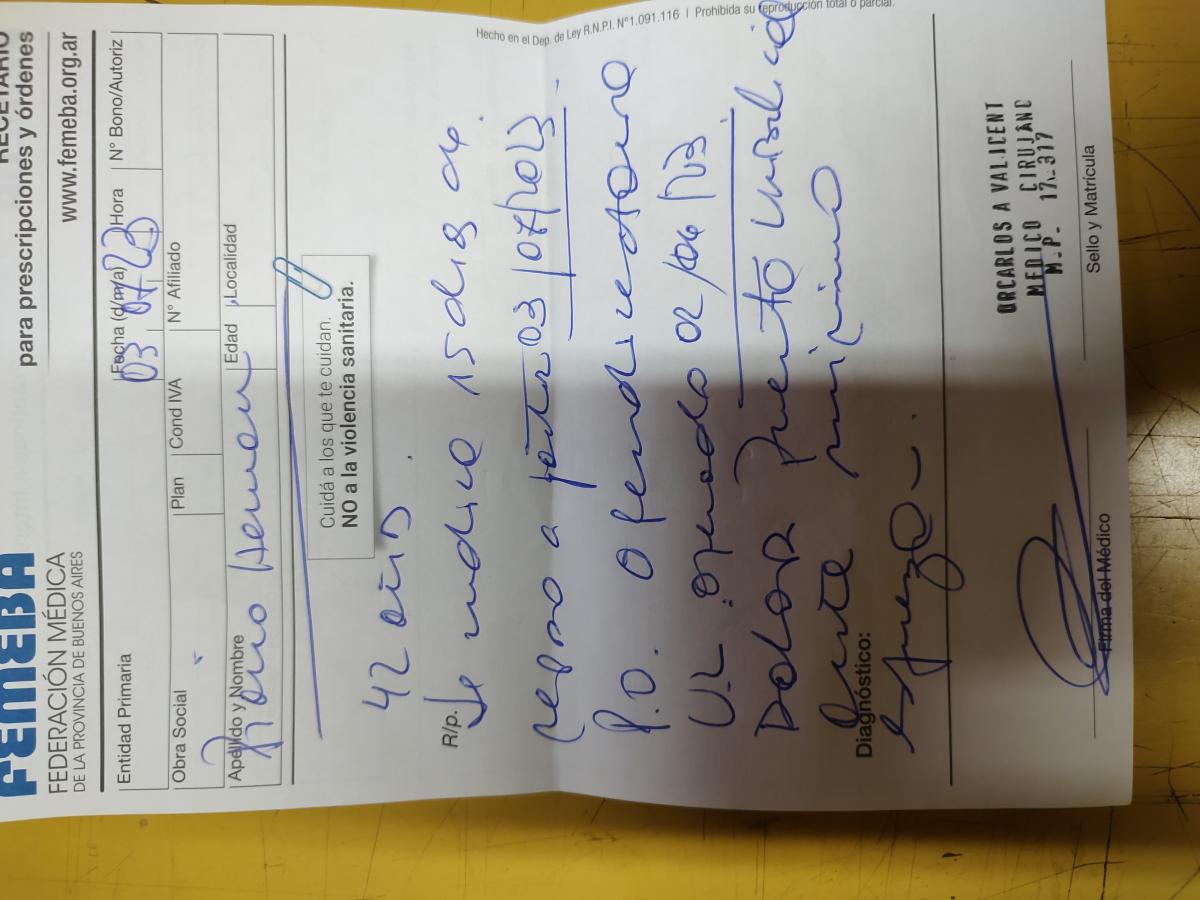 RECETARIO
para prescripciones y órdenes
www.femeba.org.ar
FEMEBA
FEDERACIÓN MÉDICA
DE LA PROVINCIA DE BUENOS AIRES
Entidad Primaria
Fecha (d/m/a) Hora
N° Bono/Autoriz
03 07 23
Obra Social
Plan
Cond IVA
N° Afiliado
Apellido y Nombre
Edad
Localidad
Cuidá a los que te cuidan.
NO a la violencia sanitaria.
42 años
R/p.
Se indica 15 dias de
reposo a partir 03/07/2023
P.O.
operado 02/06/23
DOLOR Puerto umbilical
ante minimo
Diagnóstico:
esfuerzo.
DR CARLOS A VALICENT
MEDICO CIRUJANO
M.P. 17.317
Firma del Médico
Sello y Matrícula
Hecho en el Dep. de Ley R.N.P.I. N°1.091.116 | Prohibida su reproducción total o parcial.